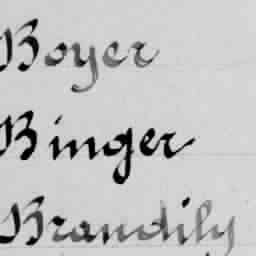 Boyer
Binger
Brandily